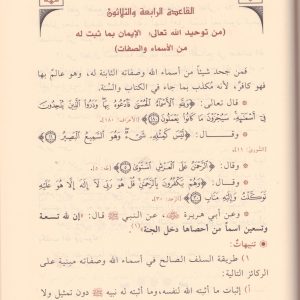 القاعدة الرابعة والثلاثون
(من توحيد الله تعالى: الإيمان بما ثبت له
من الأسماء والصفات)
فمن جحد شيئاً من أسماء الله وصفاته الثابتة له، وهو عالم بها
فهو كافر؛ لأنه مكذب بما جاء في الكتاب والسنة.
* قال تعالى: ﴿وَلِلَّهِ الْأَسْمَاءُ الْحُسْنَى فَادْعُوهُ بِهَا وَذَرُوا الَّذِينَ يُلْحِدُونَ
فِي أَسْمَائِهِ سَيُجْزَوْنَ مَا كَانُوا يَعْمَلُونَ﴾ [الأعراف: ١٨٠].
* وقال: ﴿لَيْسَ كَمِثْلِهِ شَيْءٌ وَهُوَ السَّمِيعُ الْبَصِيرُ﴾
[الشورى: ١١].
* وقال: ﴿الرَّحْمَنُ عَلَى الْعَرْشِ اسْتَوَى﴾ [طه: ٥].
* وقال: ﴿وَهُمْ يَكْفُرُونَ بِالرَّحْمَنِ قُلْ هُوَ رَبِّي لَا إِلَهَ إِلَّا هُوَ عَلَيْهِ
تَوَكَّلْتُ وَإِلَيْهِ مَتَابِ﴾ [الرعد: ٣٠].
* وعن أبي هريرة ﷺ، عن النبي ﷺ قال: «إن لله تسعة
وتسعين اسماً من أحصاها دخل الجنة»(١)
* تنبيهات:
١) طريقة السلف الصالح في أسماء الله وصفاته مبنية على
الركائز التالية:
أ) إثبات ما أثبته الله لنفسه، وما أثبته له نبيه ﷺ دون تمثيل ولا